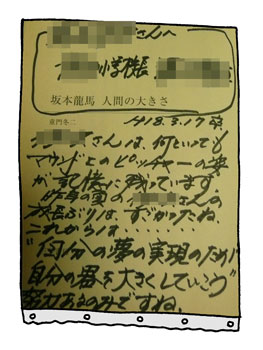 さんへ
小学校長
坂本龍馬 人間の大きさ
童門冬二
H18.3.17
さんは、何といっても
マウンド上のピッチャーの姿
が記憶に残っています
昨年の夏の
成長ぶりは、すごかったね。
これからは........
自分の夢の実現のために
自分の器を大きくしていこう"
努力あるのみですね。